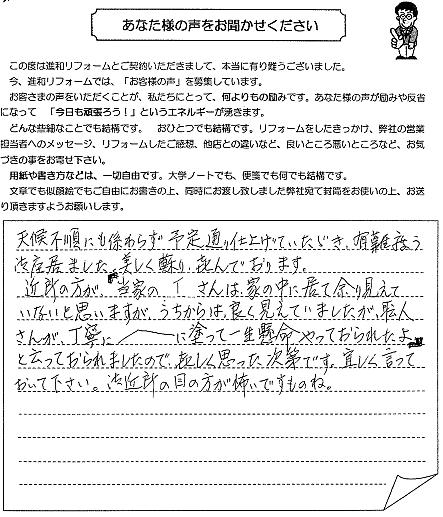 あなた様の声をお聞かせください
この度は進和リフォームとご契約いただきまして、本当に有り難うございました。
今、進和リフォームでは、「お客様の声」を募集しています。
お客さまの声をいただくことが、私たちにとって、何よりもの励みです。あなた様の声が励みや反省
になって 「今日も頑張ろう！」というエネルギーが湧きます。
どんな些細なことでも結構です。 おひとつでも結構です。リフォームをしたきっかけ、弊社の営業
担当者へのメッセージ、リフォームしたご感想、他店との違いなど、良いところ悪いところなど、お気
づきの事をお寄せ下さい。
用紙や書き方などは、一切自由です。大学ノートでも、便箋でも何でも結構です。
文章でも似顔絵でもご自由にお書きの上、同時にお渡し致しました弊社宛て封筒をお使いの上、お送
り頂きますようお願いします。
天候不順にも係わらず予定通り仕上げていただき、有難度う
御座居ました。美しく蘇り、喜んでおります。
近所の方が、『当家の T さんは、家の中に居て余り見えて
いないと思いますが、うちからは良く見えていましたが、職人
さんが、丁寧に に塗って一生懸命やっておられたよ』
と云っておられましたので、嬉しく思った次第です。宜しく言って
おいて下さい。御近所の目の方が怖いですものね。